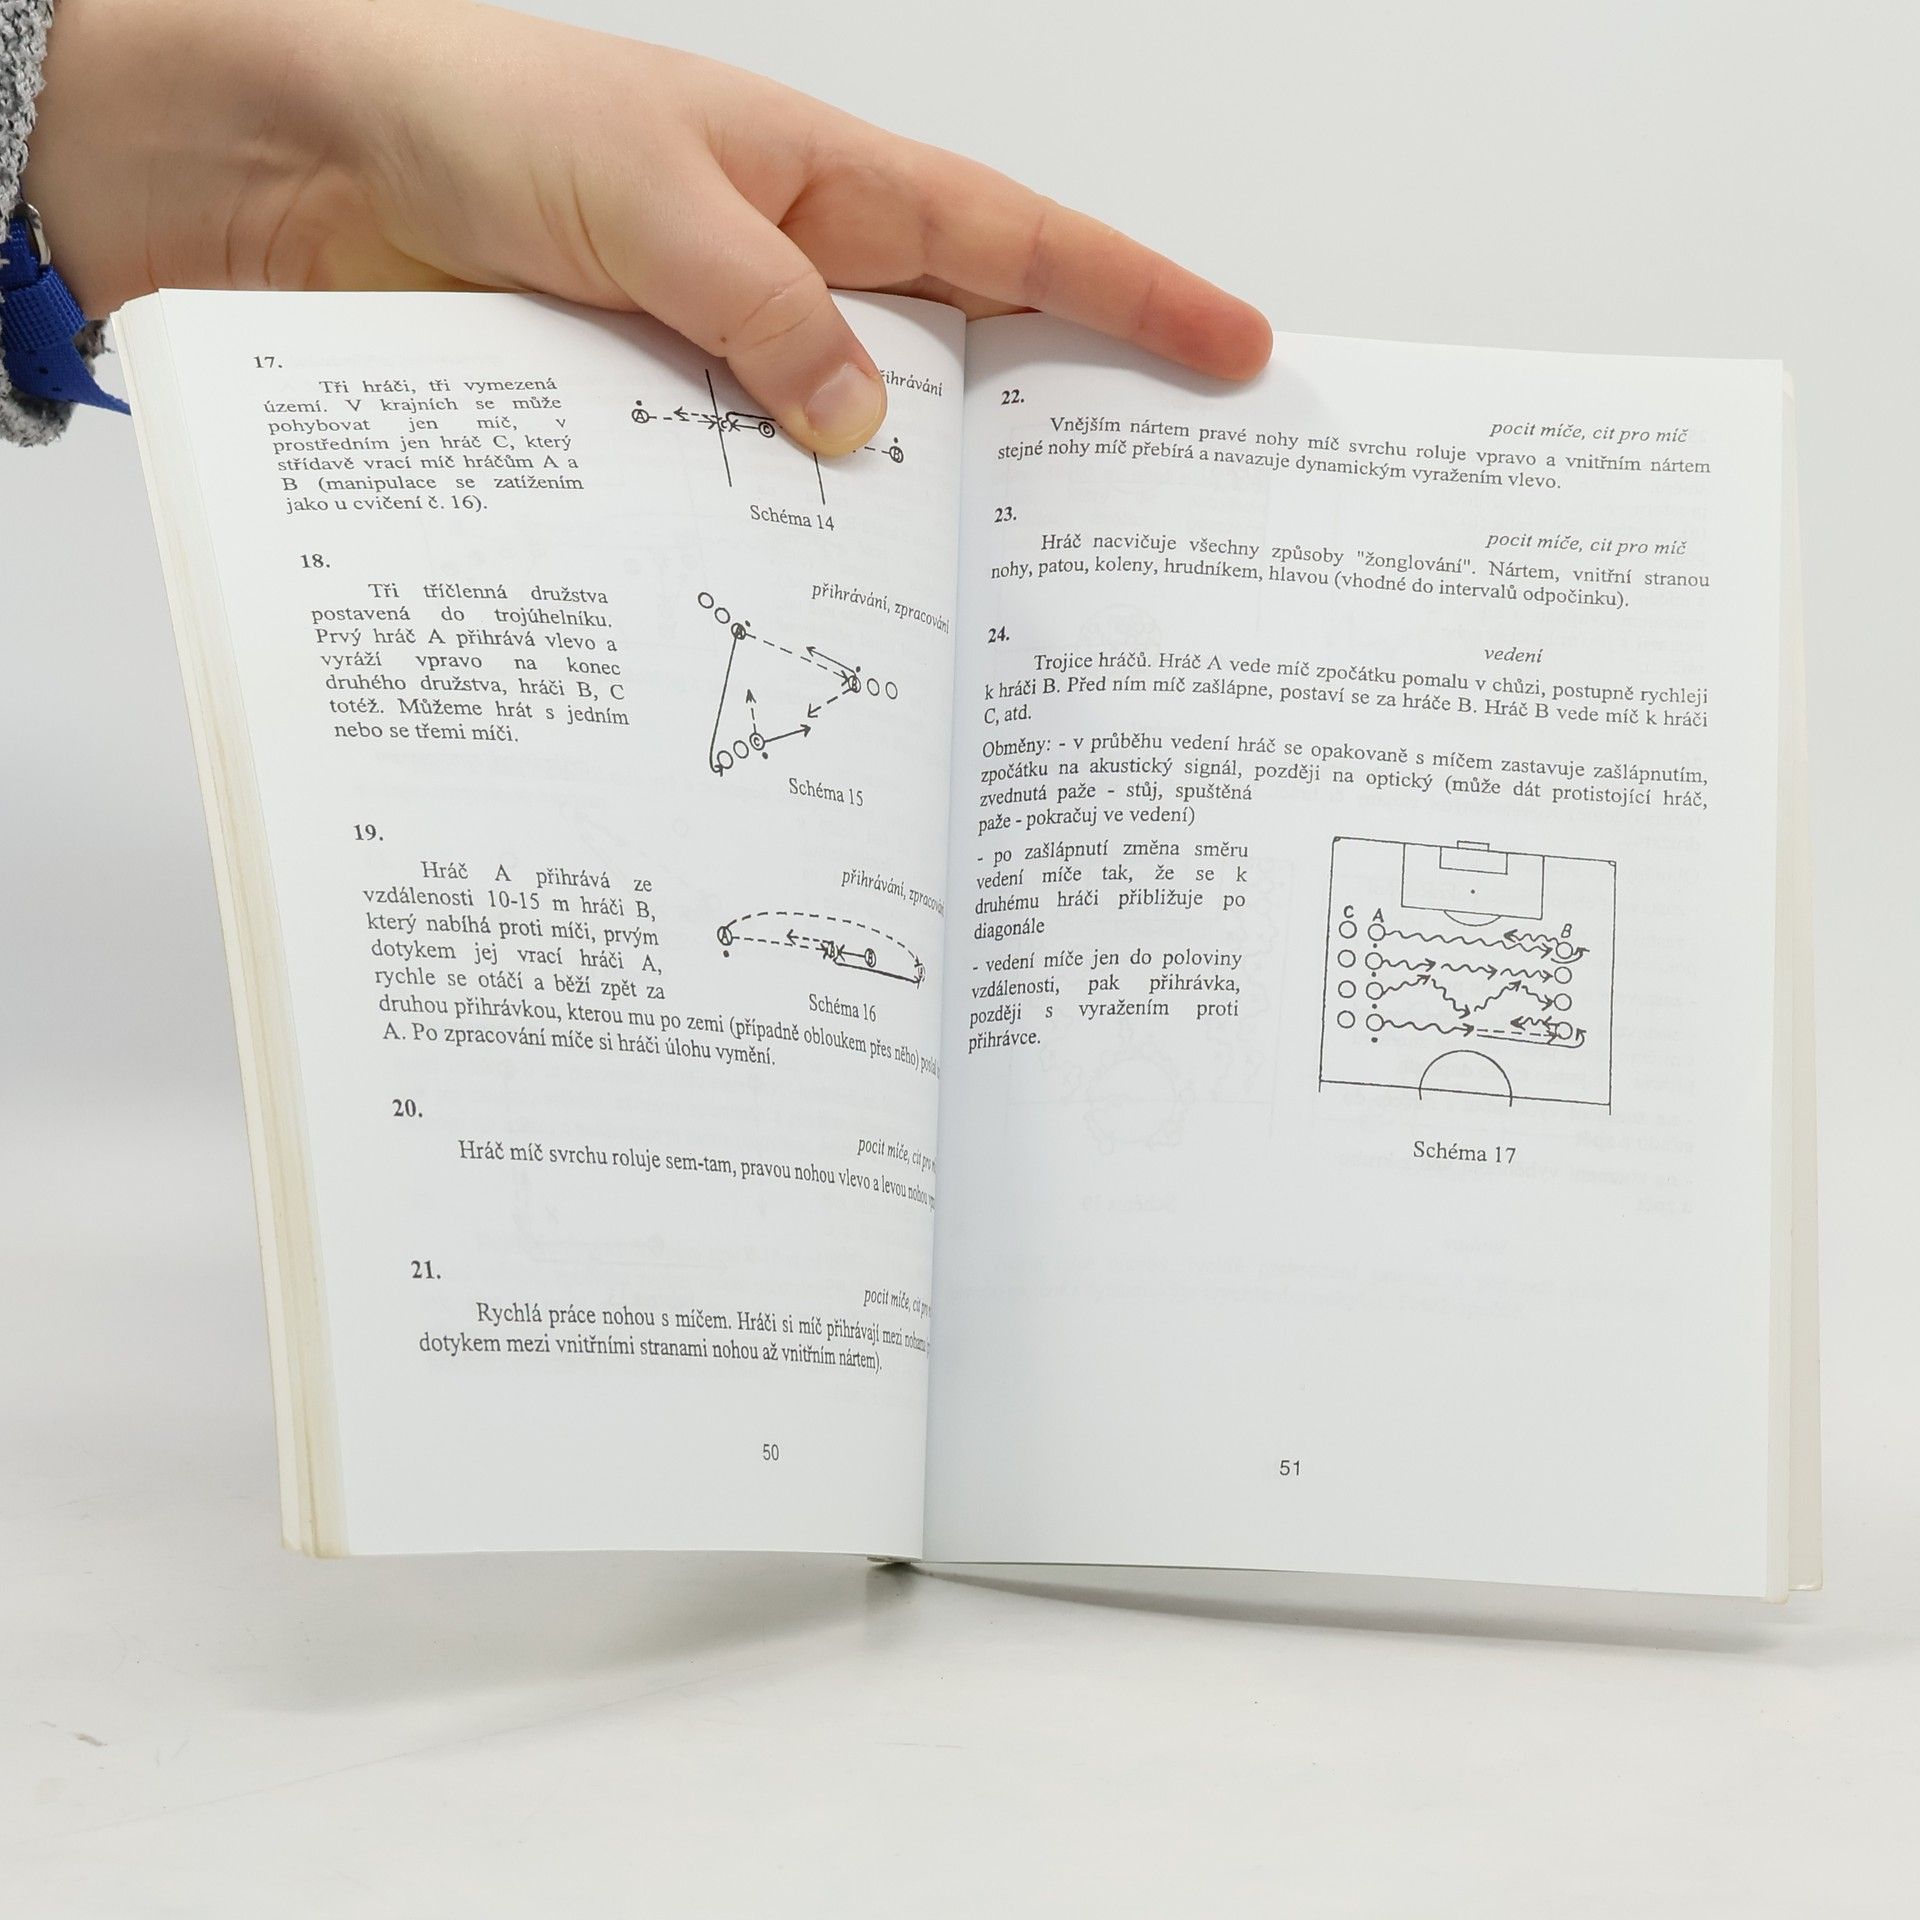 17.
Tři hráči, tři vymezená
území. V krajních se může
pohybovat jen míč, v
prostředním jen hráč C, který
střídavě vrací míč hráčům A a
B (manipulace se zatížením
jako u cvičení č. 16).
A
C
B
Schéma 14
18.
přihrávání, zpracování
Tři tříčlenná družstva
postavená do trojúhelníku.
Prvý hráč A přihrává vlevo a
vyráží vpravo na konec
druhého družstva, hráči B, C
totéž. Můžeme hrát s jedním
nebo se třemi míči.
A
B
C
Schéma 15
19.
přihrávání,
Hráč A přihrává ze
vzdálenosti 10-15 m hráči B,
který nabíhá proti míči, prvým
dotykem jej vrací hráči A,
rychle se otáčí a běží zpět za
druhou přihrávkou, kterou mu po zemi (případně obloukem přes něho)
A. Po zpracování míče si hráči úlohu vymění.
A
B
B
B
Schéma 16
20.
pocit míče, cit
Hráč míč svrchu roluje sem-tam, pravou nohou vlevo a levou nohou
21.
pocit míče, cit
Rychlá práce nohou s míčem. Hráči si míč přihrávají mezi nohama
dotykem mezi vnitřními stranami nohou až vnitřním nártem).
50
22.
pocit míče, cit pro míč
Vnějším nártem pravé nohy míč svrchu roluje vpravo a vnitřním nártem
stejné nohy míč přebírá a navazuje dynamickým vyražením vlevo.
23.
pocit míče, cit pro míč
Hráč nacvičuje všechny způsoby "žonglování". Nártem, vnitřní stranou
nohy, patou, koleny, hrudníkem, hlavou (vhodné do intervalů odpočinku).
24.
vedení
Trojice hráčů. Hráč A vede míč zpočátku pomalu v chůzi, postupně rychleji
k hráči B. Před ním míč zašlápne, postaví se za hráče B. Hráč B vede míč k hráči
C, atd.
Obměny: - v průběhu vedení hráč se opakovaně s míčem zastavuje zašlápnutím,
zpočátku na akustický signál, později na optický (může dát protistojící hráč,
zvednutá paže - stůj, spuštěná
paže - pokračuj ve vedení)
- po zašlápnutí změna směru
vedení míče tak, že se k
druhému hráči přibližuje po
diagonále
- vedení míče jen do poloviny
vzdálenosti, pak přihrávka,
později s vyražením proti
přihrávce.
C A B
Schéma 17
51